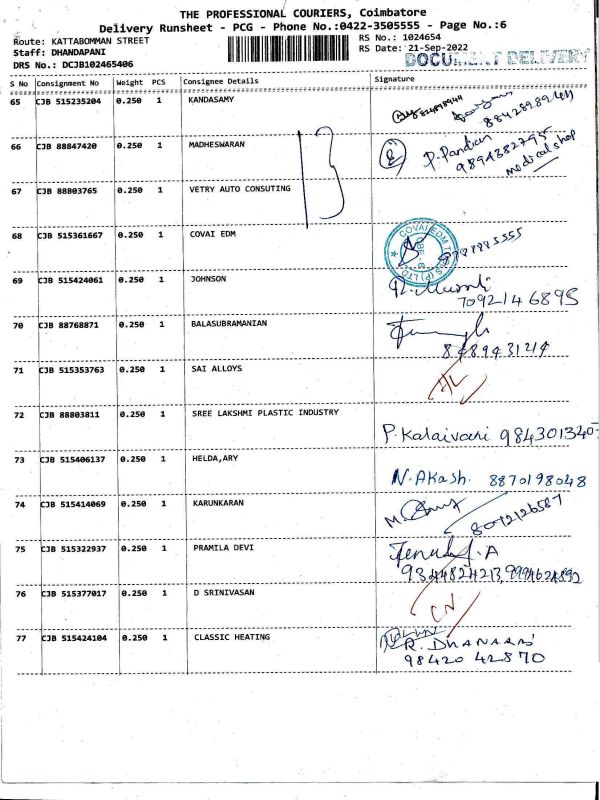 THE PROFESSIONAL COURIERS, Coimbatore
Delivery Runsheet - PCG - Phone No.:0422-3505555 - Page No.:6
Route: KATTABOMMAN STREET RS No.: 1024654
Staff: DHANDAPANI RS Date: 21-Sep-2022
DRS No.: DCJB102465406 DOCUMENT DELIVERY
S No Consignment No Weight PCS Consignee Details Signature
65 CJB 515235204 0.250 1 KANDASAMY
8842898941
66 CJB 88847420 0.250 1 MADHESWARAN P. Pandian
9894382795
medical shop
67 CJB 88803765 0.250 1 VETRY AUTO CONSUTING
13
68 CJB 515361667 0.250 1 COVAI EDM
69 CJB 515424061 0.250 1 JOHNSON
7092146895
70 CJB 88768871 0.250 1 BALASUBRAMANIAN
8489431214
71 CJB 515353763 0.250 1 SAI ALLOYS
72 CJB 88803811 0.250 1 SREE LAKSHMI PLASTIC INDUSTRY
P. Kalaivani 984301340
73 CJB 515406137 0.250 1 HELDA,ARY
N. Akash. 8870198048
74 CJB 515414069 0.250 1 KARUNKARAN
8072126587
75 CJB 515322937 0.250 1 PRAMILA DEVI
9344824213, 9994624892
76 CJB 515377017 0.250 1 D SRINIVASAN
CN
77 CJB 515424104 0.250 1 CLASSIC HEATING
R. DHANARAJ
98420 42870